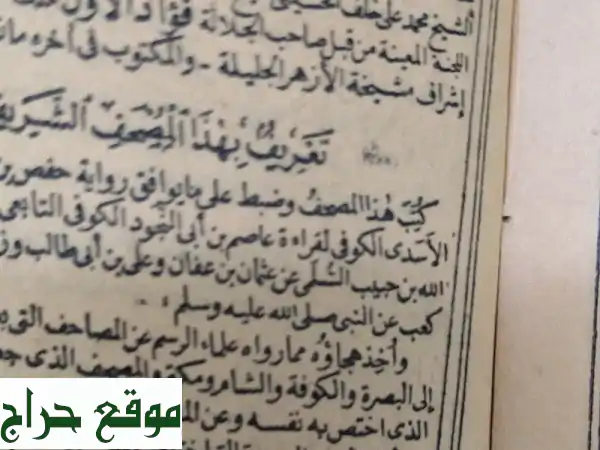 الشيخ محمد على خلف الحسينى
اللجنة المعينة من قبل صاحب الجلالة فؤاد الأول
إشراف مشيخة الأزهر الجليلة - والمكتوب فى آخره ما
تَعْرِيفٌ بِهَذَا ٱلْمُصْحَفِ ٱلشَّرِيفِ
كُتِبَ هٰذا المصحفُ وضبط على ما يوافق رواية حفص بن
الأسدى الكوفى لقراءة عاصم بن أبى النَّجود الكوفى التابعى
الله بن حبيب السُّلَمى عن عثمان بن عفان وعلى بن أبى طالب وز
كعب عن النبى صلى الله عليه وسلم .
وأُخِذ هجاؤُه مما رواه علماء الرسم عن المصاحف التى
إلى البصرة والكوفة والشام ومكة والمصحف الذى جع
الذى اختص به نفسه وعن الم
موقع حراج